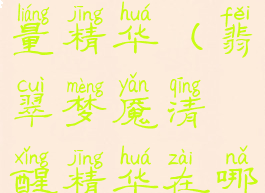 liáng jīng huá fěi
量精华(翡
cuì mèng yǎn qīng
翠梦魇清
xǐng jīng huá zài nǎ
醒精华在哪